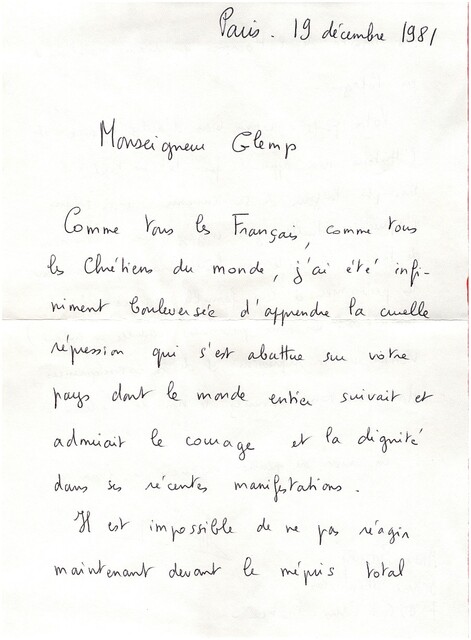 Paris. 19 décembre 1981
Monseigneur Glemp
Comme tous les Français, comme tous
les Chrétiens du monde, j'ai été infi-
niment bouleversée d'apprendre la cruelle
répression qui s'est abattue sur votre
pays dont le monde entier suivait et
admirait le courage et la dignité
dans ses récentes manifestations.
Il est impossible de ne pas réagir
maintenant devant le mépris total